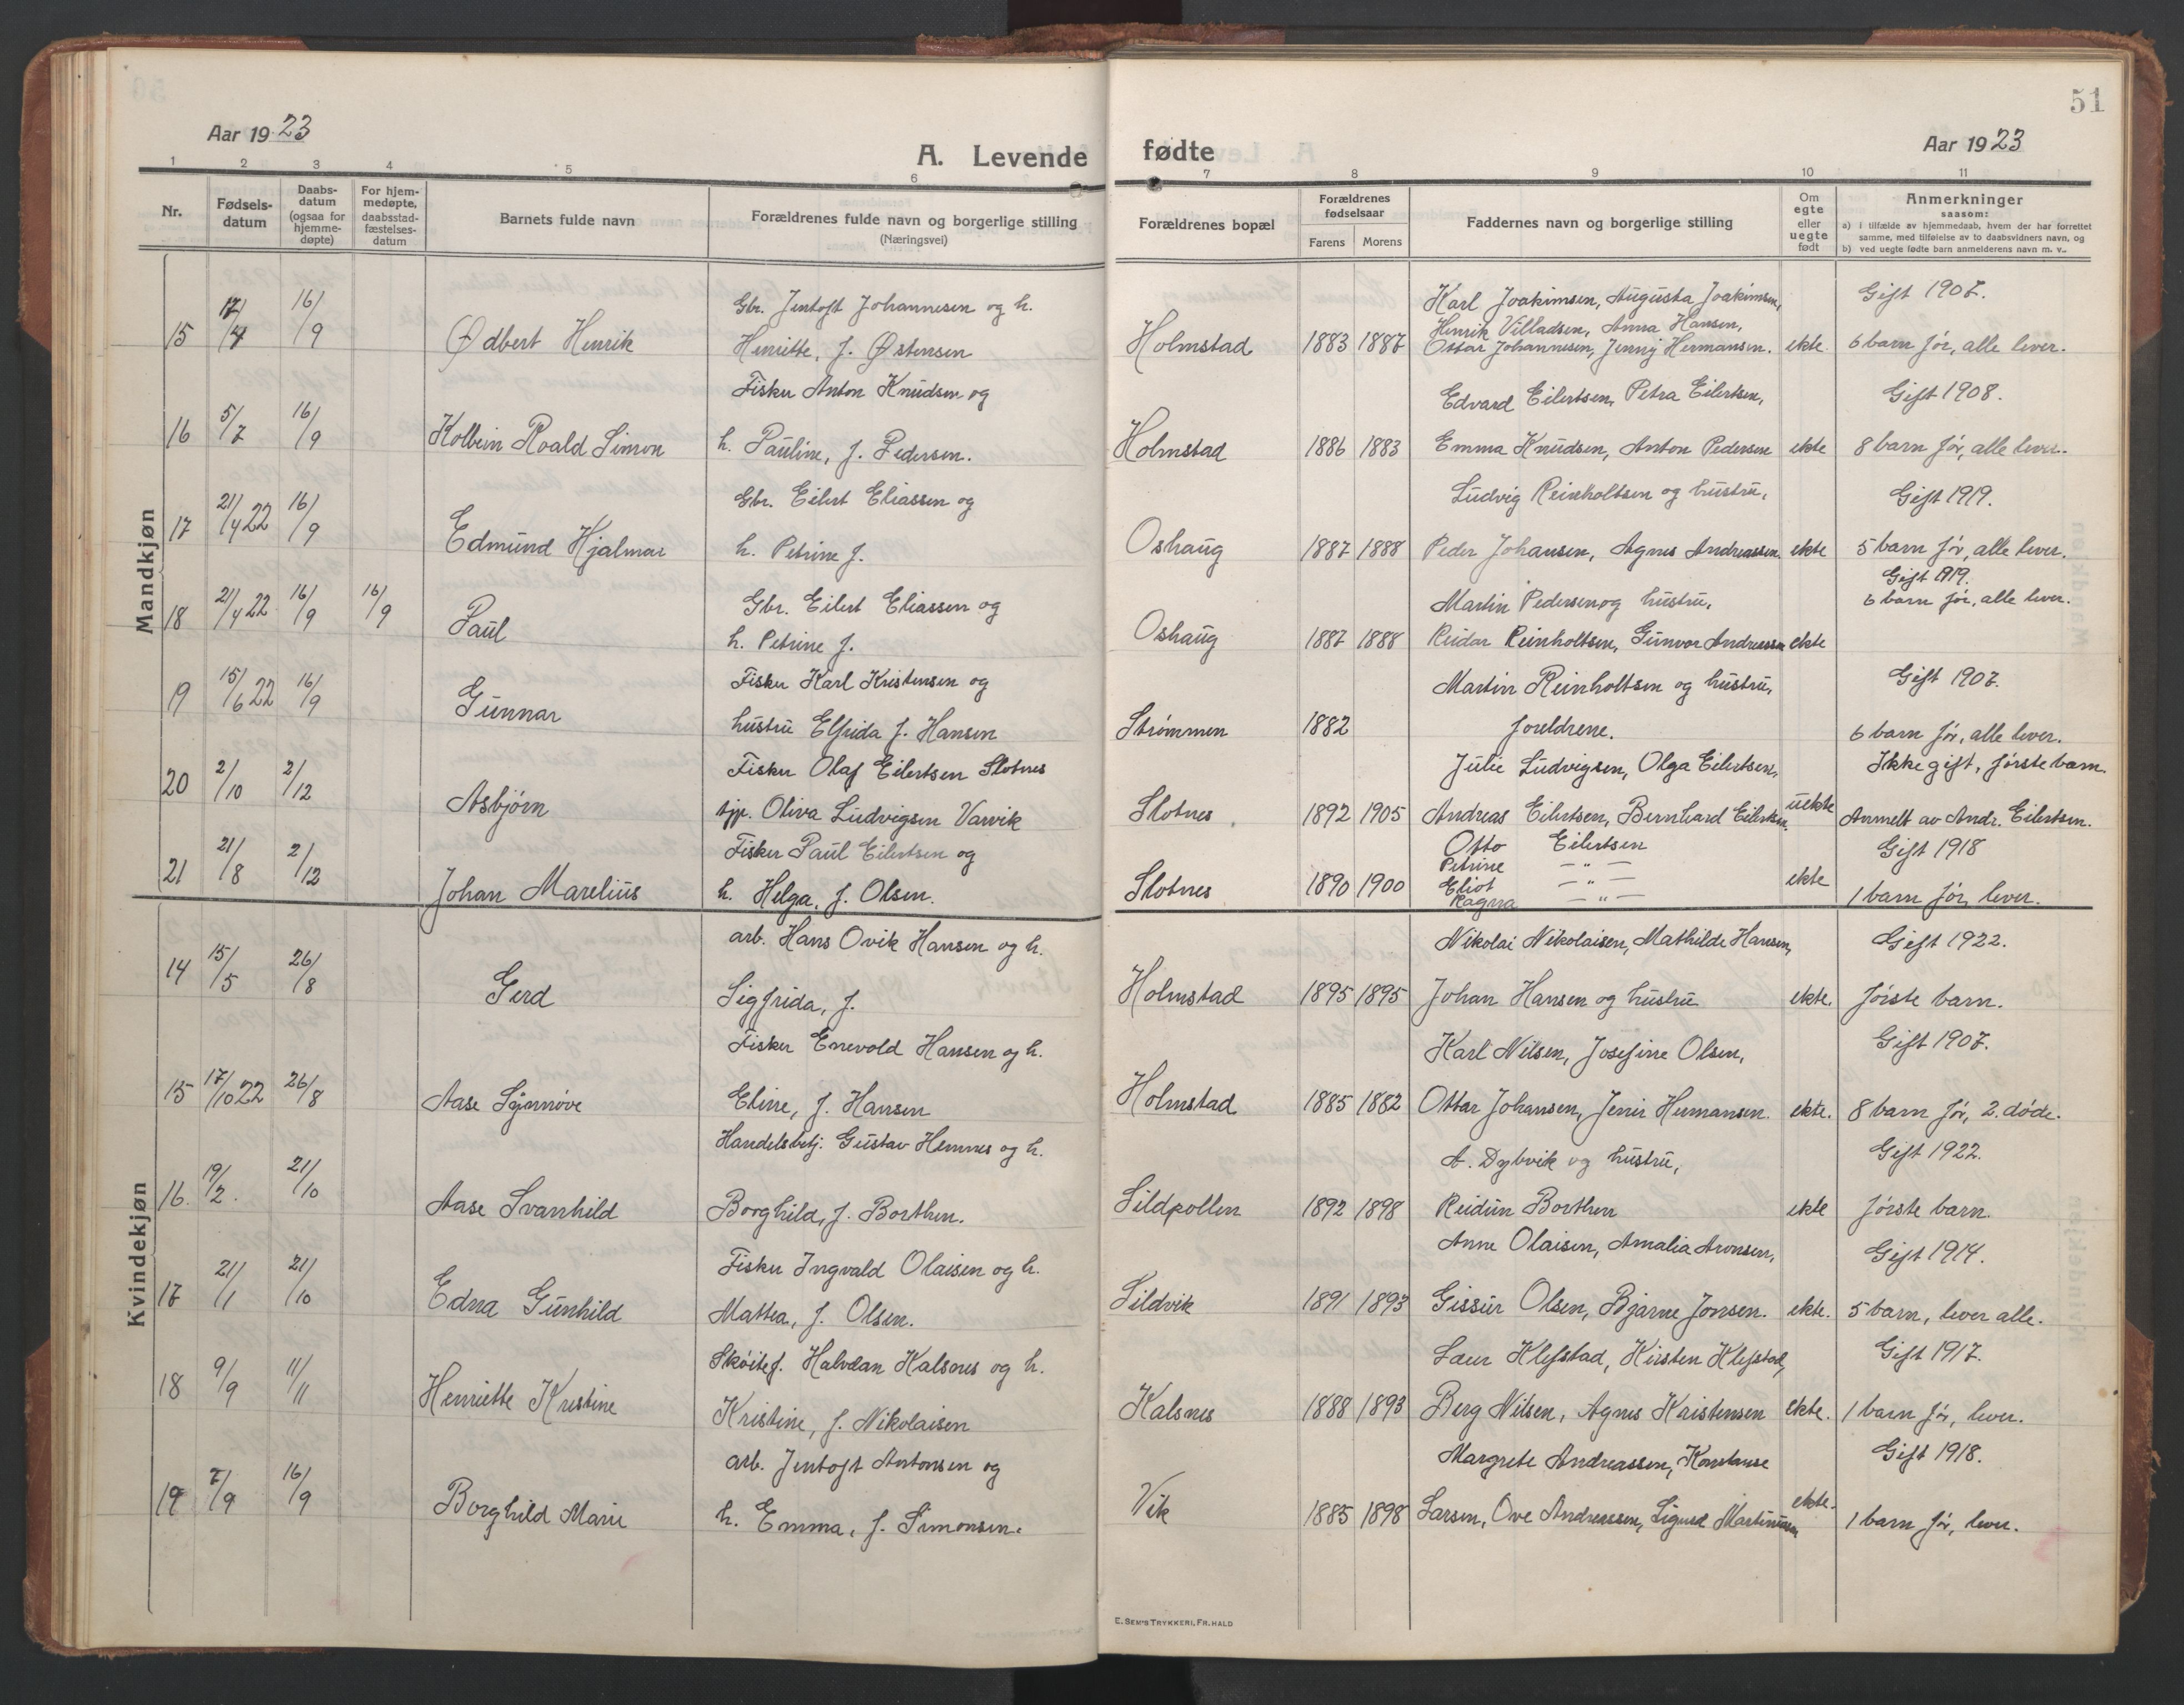 51
Aar 1923
A. Levende fødte
Aar 1923
1 2 3 4 5 6 7 8 9 10 11
Nr.
Fødsels-datum
Daabs-datum (ogsaa for hjemme-døpte)
For hjem-medøpte, daabsstad-fæstelses-datum
Barnets fulde navn
Forældrenes fulde navn og borgerlige stilling
(Næringsvei)
Forældrenes bopæl
Forældrenes fødselsaar
Farens Morens
Faddernes navn og borgerlige stilling
Om egte eller uegte født
Anmerkninger
saasom:
a) i tilfælde av hjemmedaab, hvem der har forrettet samme, med tilføielse av to daabsvidners navn, og
b) ved uegte fødte barn anmelderens navn m. v.
Mandkjøn
Gbr. Jentoft Johannesen og h. Karl Joakimsen, Augusta Joakimsen, Gift 1907.
Henrik Villadsen, Anna Hansen,
15 17/4 16/9 Ødbert Henrik Henriette, f. Østensen Holmstad 1883 1887 Ottar Johannesen, Jenny Hermansen. ekte. 6 barn før, alle lever.
Fisker Anton Knudsen og Edvard Eilertsen, Petra Eilertsen, Gift 1908.
16 5/7 16/9 Kolbein Roald Simon h. Pauline, f. Pedersen. Holmstad 1886 1883 Emma Knudsen, Anton Pedersen ekte 8 barn før, alle lever.
Gbr. Eilert Eliassen og Ludvig Reinholtsen og hustru, Gift 1919.
17 21/4 22 16/9 Edmund Hjalmar h. Petrine f. Oshaug 1887 1888 Peder Johansen, Agnes Andreassen. ekte 5 barn før, alle lever.
Gift 1919.
Gbr. Eilert Eliassen og Martin Pedersen og hustru, 6 barn før, alle lever.
18 21/4 22 16/9 16/9 Paul h. Petrine f. Oshaug 1887 1888 Reidar Reinholtsen, Gunvor Andreassen ekte
Fisker Karl Kristensen og Martin Reinholtsen og hustru, Gift 1907.
19 15/6 22 16/9 Gunnar hustru Elfrida f. Hansen Strømmen 1882 foreldrene. 6 barn før, alle lever.
Fisker Olaf Eilertsen Slotnes Julie Ludvigsen, Olga Eilertsen, Ikke gift, første barn.
20 2/10 2/12 Asbjørn tjp. Oliva Ludvigsen Varvik Slotnes 1892 1905 Andreas Eilertsen, Bernhard Eilertsen. uekte Anmelt av Andr. Eilertsen.
Fisker Paul Eilertsen og Otto Eilertsen Gift 1918
Petrine — " —
21 21/8 2/12 Johan Marelius h. Helga, f. Olsen. Slotnes 1890 1900 Eliot — " — ekte 1 barn før, lever.
Ragna — " —
Kvindekjøn
arb. Hans Ovik Hansen og h. Nikolai Nikolaisen, Mathilde Hansen, Gift 1922.
14 15/5 26/8 Gerd Sigfrida, f. Holmstad 1895 1895 Johan Hansen og hustru ekte. første barn.
Fisker Enevold Hansen og h. Karl Nilsen, Josefine Olsen, Gift 1907.
15 17/10 22 26/8 Aase Synnøve Eline, f. Hansen Holmstad 1885 1882 Ottar Johansen, Jenni Hermansen. ekte. 8 barn før, 2. døde.
Handelsbetj. Gustav Hemnes og h. A. Dybvik og hustru, Gift 1922.
16. 19/2. 21/10 Aase Svanhild Borghild, f. Borthen. Sildpollen 1892 1898 Reidun Borthen ekte første barn.
Fisker Ingvald Olaisen og h. Anne Olaisen, Amalia Aronsen, Gift 1914.
17 21/1 21/10 Edna Gunhild Mattea, f. Olsen. Sildvik 1891 1893 Gissur Olsen, Bjarne Jonsen. ekte. 5 barn, lever alle.
Skøitef. Halvdan Kalsnes og h. Laur Klefstad, Kirsten Klefstad, Gift 1917.
18 9/9 11/11 Henriette Kristine Kristine, f. Nikolaisen Kalsnes 1888 1893 Berg Nilsen, Agnes Kristensen ekte. 1 barn før, lever.
arb. Jentoft Antonsen og Margrete Andreassen, Konstanse Gift 1918.
19 7/9 16/9 Borghild Marie h. Emma, f. Simonsen. Vik 1885 1898 Larsen, Ove Andreassen, Sigurd Martinussen ekte. 1 barn før, lever.
E. SEM'S TRYKKERI, FR.HALD